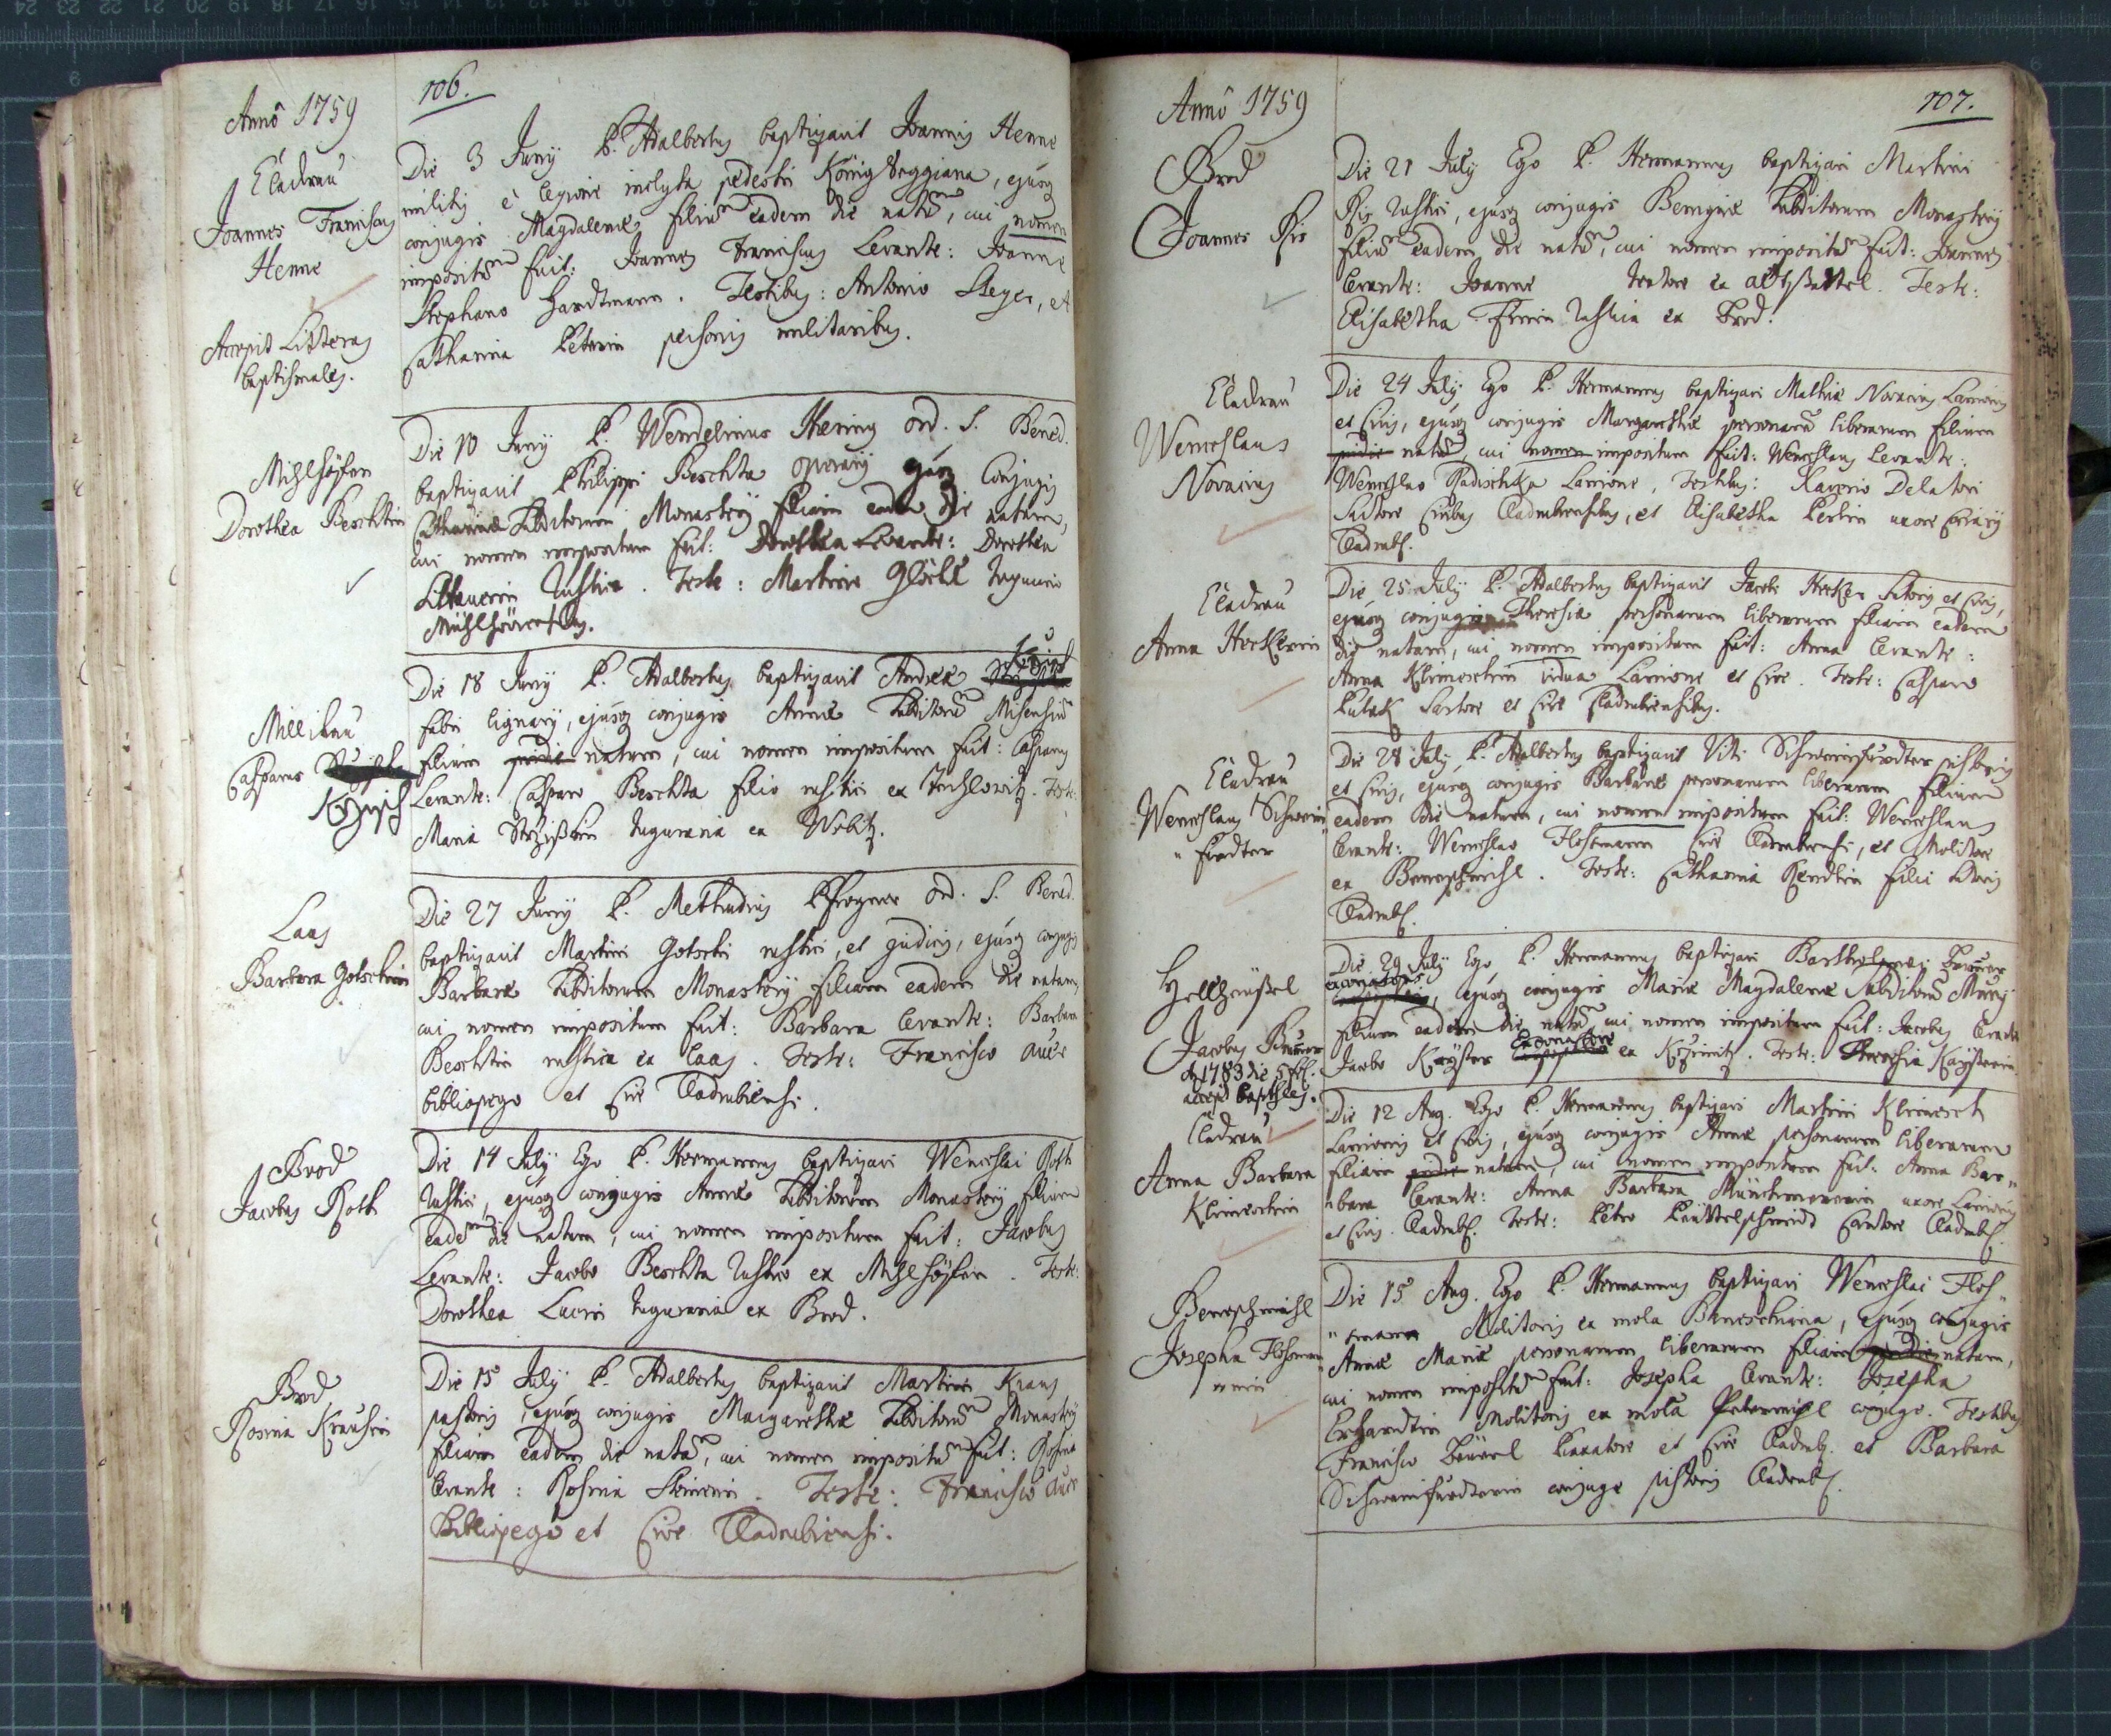 Anno 1759
106.
Cladrau
Joannes Franciscus
Henne
Accepit Litteras
baptismales.
Die 3 Junij P. Adalbertus baptizavit Joannis Henne
militis è legione inclyta pedestri Königseggiana, ejusq
conjugis Magdalenæ filium eadem die natum, cui nomen
impositum fuit: Joannes Franciscus Levante: Joanne
Stephano Hardtmann. Testibus: Antonio Steger, et
Catharina Peterin personis militaribus.
Mihlhöfen
Dorothea Beschtin
Die 10 Junij P. Wendelinus Hering ord. S. Bened.
baptizavit Philippi Beschta operarij ejusq Conjugis
Catharinæ subditorum Monasterij filiam eadem die natam,
cui nomen impositum fuit: Dorothea Levante: Dorothea
rustica. Teste: Martino Glöckl inquilino
Millikau
Casparus
Die 18 Junij P. Adalbertus baptizavit Andreæ
fabri lignarij, ejusq conjugis Annæ subditorum
filium pridie natum, cui nomen impositum fuit: Casparus
Levante: Casparo Beschta filio rustici ex Techlowitz. Teste:
Maria inquilina ex
Laas
Barbara Gotschin
Die 27 Junij P. Methudius Pfrogner ord. S. Bened.
baptizavit Martini Gotschi rustici, et judicis, ejusq conjugis
Barbaræ subditorum Monasterij filiam eadem die natam,
cui nomen impositum fuit: Barbara Levante: Barbara
Beschtin rustica ex Laas. Teste: Francisco Auer
bibliopego et Cive Cladrubiensi.
Brod
Jacobus Roth
Die 14 July Ego P. Hermannus baptizavi Wenceslai Roth
rustici, ejusq conjugis Annæ subditorum Monasterij filium
eadem die natum, cui nomen impositum fuit: Jacobus
Levante: Jacobo Beschta rustico ex Mihlhöfen. Teste:
Dorothea Lucin inquilina ex Brod.
Brod
Rosina Krausin
Die 15 July P. Adalbertus baptizavit Martini Kraus
pastoris, ejusq conjugis Margarethæ subditorum Monasterij
filiam eadem die natam, cui nomen impositum fuit: Rosina
Levante: Rosina Steinerin. Teste: Francisco Auer
Bibliopego et Cive Cladrubiensi.
Anno 1759
107.
Brod
Joannes Ris
Die 21 July Ego P. Hermannus baptizavi Martini
Ris rustici, ejusq conjugis Benignæ subditorum Monasterij
filium eadem die natum, cui nomen impositum fuit: Joannes
Levante: Joanne ex altsattel. Teste:
Elisabetha rustica ex Brod.
Cladrau
Wenceslaus
Novacius
Die 24 July Ego P. Hermannus baptizavi Mathiæ Novacius Lanionis
et Civis, ejusq conjugis Margarethæ personarum liberarum filium
pridie natum, cui nomen impositum fuit: Wenceslaus Levante:
Wenceslao Radischka Lanione, Testibus: Xaverio Delatori
Sutore Civibus Cladrubiensibus, et Elisabetha uxore
Cladrub.
Cladrau
Anna Heckerin
Die 25 July P. Adalbertus baptizavit Jacobi Hecker Sutoris et Civis,
ejusq conjugis Theresiæ personarum liberarum filiam eadem
die natam, cui nomen impositum fuit: Anna Levante:
Anna Klimeschin vidua Lanione et Cive. Teste: Casparo
Putak Sartore et Cive Cladrubiensibus.
Cladrau
Wenceslaus Schwein
"furdter
Die 28 July P. Adalbertus baptizavit Viti Schweinfurdter pistoris
et Civis, ejusq conjugis Barbaræ personarum liberarum filium
eadem die natum, cui nomen impositum fuit: Wenceslaus
Levante: Wenceslao Flosmann Cive Cladrubiensi, et Molitore
ex Beneschmihl. Teste: Catharina filia Sutoris
Cladrub.
Hollezrüßel
Jacobus
Ao 1783 die 5 feb.
accepit baptismales.
Die 29 July Ego P. Hermannus baptizavi Bartholomæi
ejusq conjugis Mariæ Magdalenæ subditorum
filium eadem die natum cui nomen impositum fuit: Jacobus Levante
Jacobo Kayser ex Teste: Theresia Kayserin
Cladrau
Anna Barbara
Klimeschin
Die 12 Aug. Ego P. Hermannus baptizavi Martini Klimesch
Lanionis et Civis, ejusq conjugis Annæ personarum liberarum
filiam pridie natam, cui nomen impositum fuit: Anna Bar"
"bara Levante: Anna Barbara uxore Lanionis
et Civis Cladrub. Teste: Petro Cantore Cladrub.
Beneschmihl
Josepha Flosman
"nin
Die 15 Aug. Ego P. Hermannus baptizavi Wenceslai Flos"
"mann Molitoris ex mola Beneschiana, ejusq conjugis
Annæ Mariæ personarum liberarum filiam pridie natam,
cui nomen impositum fuit: Josepha Levante: Josepha
Erhardtin Molitoris ex mola Petermihl conjuge. Testibus
Francisco et Cive Cladrub. et Barbara
Schweinfurdterin conjuge pistoris Cladrub.